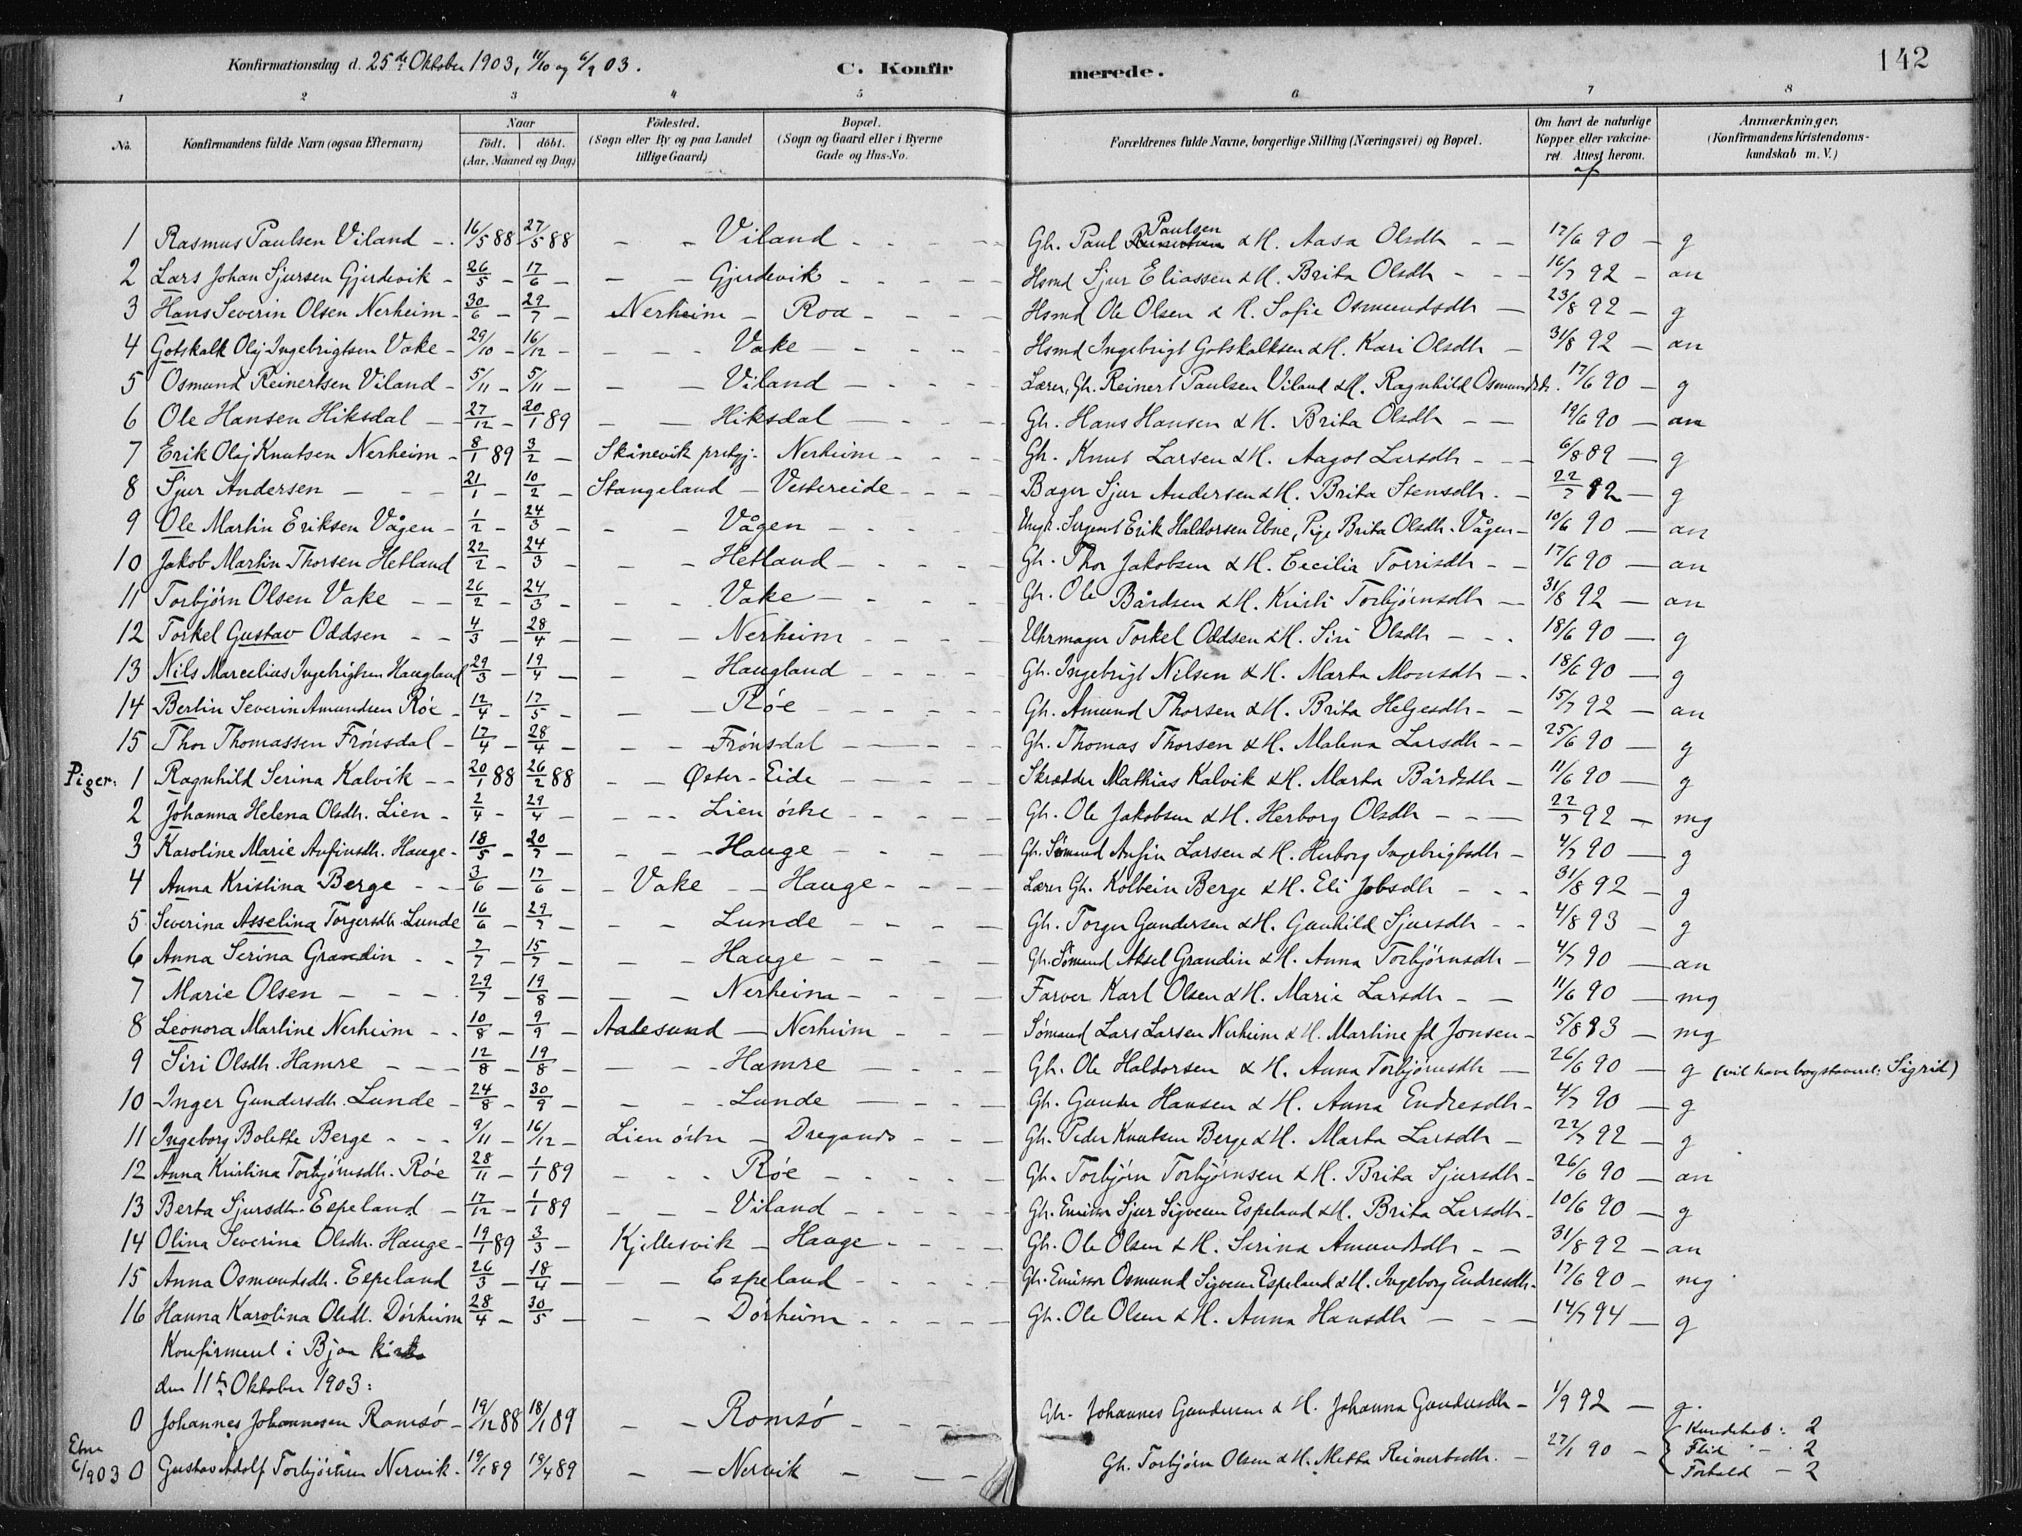 142
Konfirmationsdag d. 25de Oktober 1903, 11/10 og 6/9 03.
C. Konfirmerede.
1 2 3 4 5 6 7 8
No. Konfirmandens fulde Navn (ogsaa Efternavn) Naar födt. döbt. (Aar, Maaned og Dag) Födested. (Sogn eller By og paa Landet tillige Gaard) Bopæl. (Sogn og Gaard eller i Byerne Gade og Hus-No. Forældrenes fulde Navne, borgerlige Stilling (Næringsvei) og Bopæl. Om havt de naturlige Kopper eller vakcineret. Attest herom. af Anmærkninger. (Konfirmandens Kristendomskundskab m. V.)
1 Rasmus Paulsen Viland 16/5 88 27/5 88 - - Viland Gh. Paul Paulsen & H. Aasa Olsdh 17/6 90 - g
2 Lars Johan Sjursen Gjerdevik 26/5 - 17/6 - - Gjerdevik Hsmd Sjur Eliassen & H. Brita Olsdh 16/7 92 - an
3 Hans Severin Olsen Nerheim 30/6 - 29/7 - Nerheim - Roa Hsmd Ole Olsen & H. Sofie Osmundsdh 23/8 92 - g
4 Gotskalk Olaj Ingebrigtsen Vake 29/10 - 16/12 - - Vake Hsmd Ingebrigt Gotskalksen & H. Kari Olsdh 31/8 92 - an
5 Osmund Reinertsen Viland 5/11 - 5/11 - - Viland Lærer, Gh. Reinert Paulsen Viland & H. Ragnhild Osmundsdt. 17/6 90 - g
6 Ole Hansen Hiksdal 27/12 - 20/1 89 - - Hiksdal Gh. Hans Hansen & H. Brita Olsdh 19/6 90 - an
7 Erik Olaj Knutsen Nerheim 8/1 89 3/2 - Skånevik prstgj. Nerheim Gh. Knut Larsen & H. Aagot Larsdh 6/8 89 - g
8 Sjur Andersen 21/1 - 10/2 - Stangeland - Vestereide Bager Sjur Andersen & H. Brita Stensdh. 22/7 92 - g
9 Ole Martin Eriksen Vågen 1/2 - 24/3 - - Vågen Ungk. Sergent Erik Haldorsen Ebne, Pige Brita Olsdh. Vågen 10/6 90 - an
10 Jakob Martin Thorsen Hetland 22/2 - 24/3 - - Hetland Gh. Thor Jakobsen & H. Cecilia Torrisdh 17/6 90 - an
11 Torbjörn Olsen Vake 26/2 - 24/3 - - Vake Gh. Ole Bårdsen & H. Kristi Torbjörnsdh 31/8 92 - an
12 Torkel Gustav Oddsen 4/3 - 28/4 - - Nerheim Uhrmager Torkel Oddsen & H. Siri Olsdh 18/6 90 - g
13 Nils Marcelius Ingebrigtsen Haugland 29/3 - 19/4 - - Haugland Gh. Ingebrigt Nilsen & H. Marta Monsdh 18/6 90 - g
14 Bertin Severin Amundsen Róe 12/4 - 17/5 - - Róe Gh. Amund Thorsen & H. Brita Helgesdh 15/7 92 - an
15 Thor Thomassen Frónsdal 17/4 - 28/4 - - Frónsdal Gh. Thomas Thorsen & H. Malena Larsdh 25/6 90 - g
Piger: 1 Ragnhild Serina Kalvik 20/1 88 26/2 88 - - Øster-Eide Skrædder Mathias Kalvik & H. Marta Bårdsdh 11/6 90 - g
2 Johanna Helena Olsdh. Lien 2/4 - 29/4 - - Lien óstre Gh. Ole Jakobsen & H. Herborg Olsdh 22/7 92 - mg
3 Karoline Marie Anfinsdh. Hauge 18/5 - 20/7 - - Hauge Gh. Sömand Anfin Larsen & H. Herborg Ingebrigtsdh 4/7 90 - g
4 Anna Kristina Berge 3/6 - 17/6 - Vake - Hauge Lærer Gh. Kolbein Berge & H. Eli Jobsdh 31/8 92 - g
5 Severina Asselina Torgersdh. Lunde 16/6 - 29/7 - - Lunde Gh. Torger Gundersen & H. Gunhild Sjursdh 4/8 93 - g
6 Anna Serina Grandin 7/7 - 15/7 - - Hauge Gh. Sömand Aksel Grandin & H. Anna Torbjörnsdh 4/7 90 - an
7 Marie Olsen 29/7 - 19/8 - - Nerheim Farver Karl Olsen & H. Marie Larsdh 11/6 90 - mg
8 Leonora Martine Nerheim 10/8 - 9/9 - Aalesund - Nerheim Sömand Lars Larsen Nerheim & H. Martine fd Jonsen 5/8 93 - mg
9 Siri Olsdh. Hamre 12/8 - 19/8 - - Hamre Gh. Ole Haldorsen & H. Anna Torbjörnsdh 26/6 90 - g (vil have bogstaveret: Sigrid)
10 Inger Gundersdh. Lunde 24/8 - 30/9 - - Lunde Gh. Gunder Hansen & H. Anna Endresdh 4/7 90 - g
11 Ingeborg Bolette Berge 9/11 - 16/12 - Lien óstre - Dreganes Gh. Peder Knutsen Berge & H. Marta Larsdh 22/7 92 - g
12 Anna Kristina Torbjörnsdh. Róe 28/11 - 1/1 89 - - Róe Gh. Torbjörn Torbjörnsen & H. Brita Sjursdh 26/6 90 - an
13 Berta Sjursdh. Espeland 17/12 - 1/1 89 - - Viland Gh. Emissr Sjur Sigveson Espeland & H. Brita Larsdh 10/6 90 - g
14 Olina Severina Olsdh. Hauge 19/1 89 3/3 - Kjillesvik - Hauge Gh. Ole Olsen & H. Serina Amundsdh 31/8 92 - an
15 Anna Osmundsdh. Espeland 26/3 - 18/4 - - Espeland Gh. Emissr Osmund Sigveson Espeland & H. Ingeborg Endresdh 17/6 90 - mg
16 Hanna Karolina Olsdh. Dórheim 28/4 - 30/5 - - Dórheim Gh. Ole Olsen & H. Anna Hansdh 14/7 94 - g
Konfirmeret i Bjoa kirke
den 11te Oktober 1903:
0 Johannes Johannesen Romsó 19/12 88 18/1 89 - - Romsó Gh. Johannes Gundersen & H. Johanna Gundersdh 1/9 92 - g.
Ebne 6/9 03 0 Gustav Adolf Torbjörnsen Nervik 19/1 89 19/4 89 - - Nervik Gh. Torbjörn Olsen & H. Metta Reinertsdh. 27/1 90 -
Kundskab: 2
Flid - 2
Forhold - 2